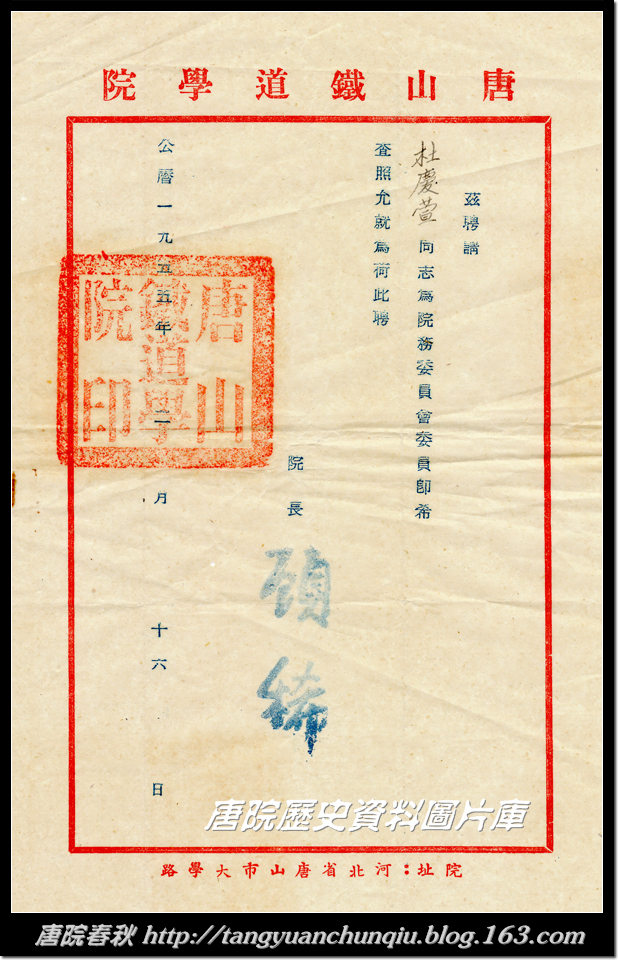 唐山鐵道學院
茲聘請
杜慶萱同志為院務委員會委員即希
查照允就為荷此聘
院長
顧稀
公曆一九五五年二月十六日
唐山鐵道學院印
唐院歷史資料圖片庫
院址：河北省唐山市大學路
唐院春秋 http://tangyuanchunqiu.blog.163.com